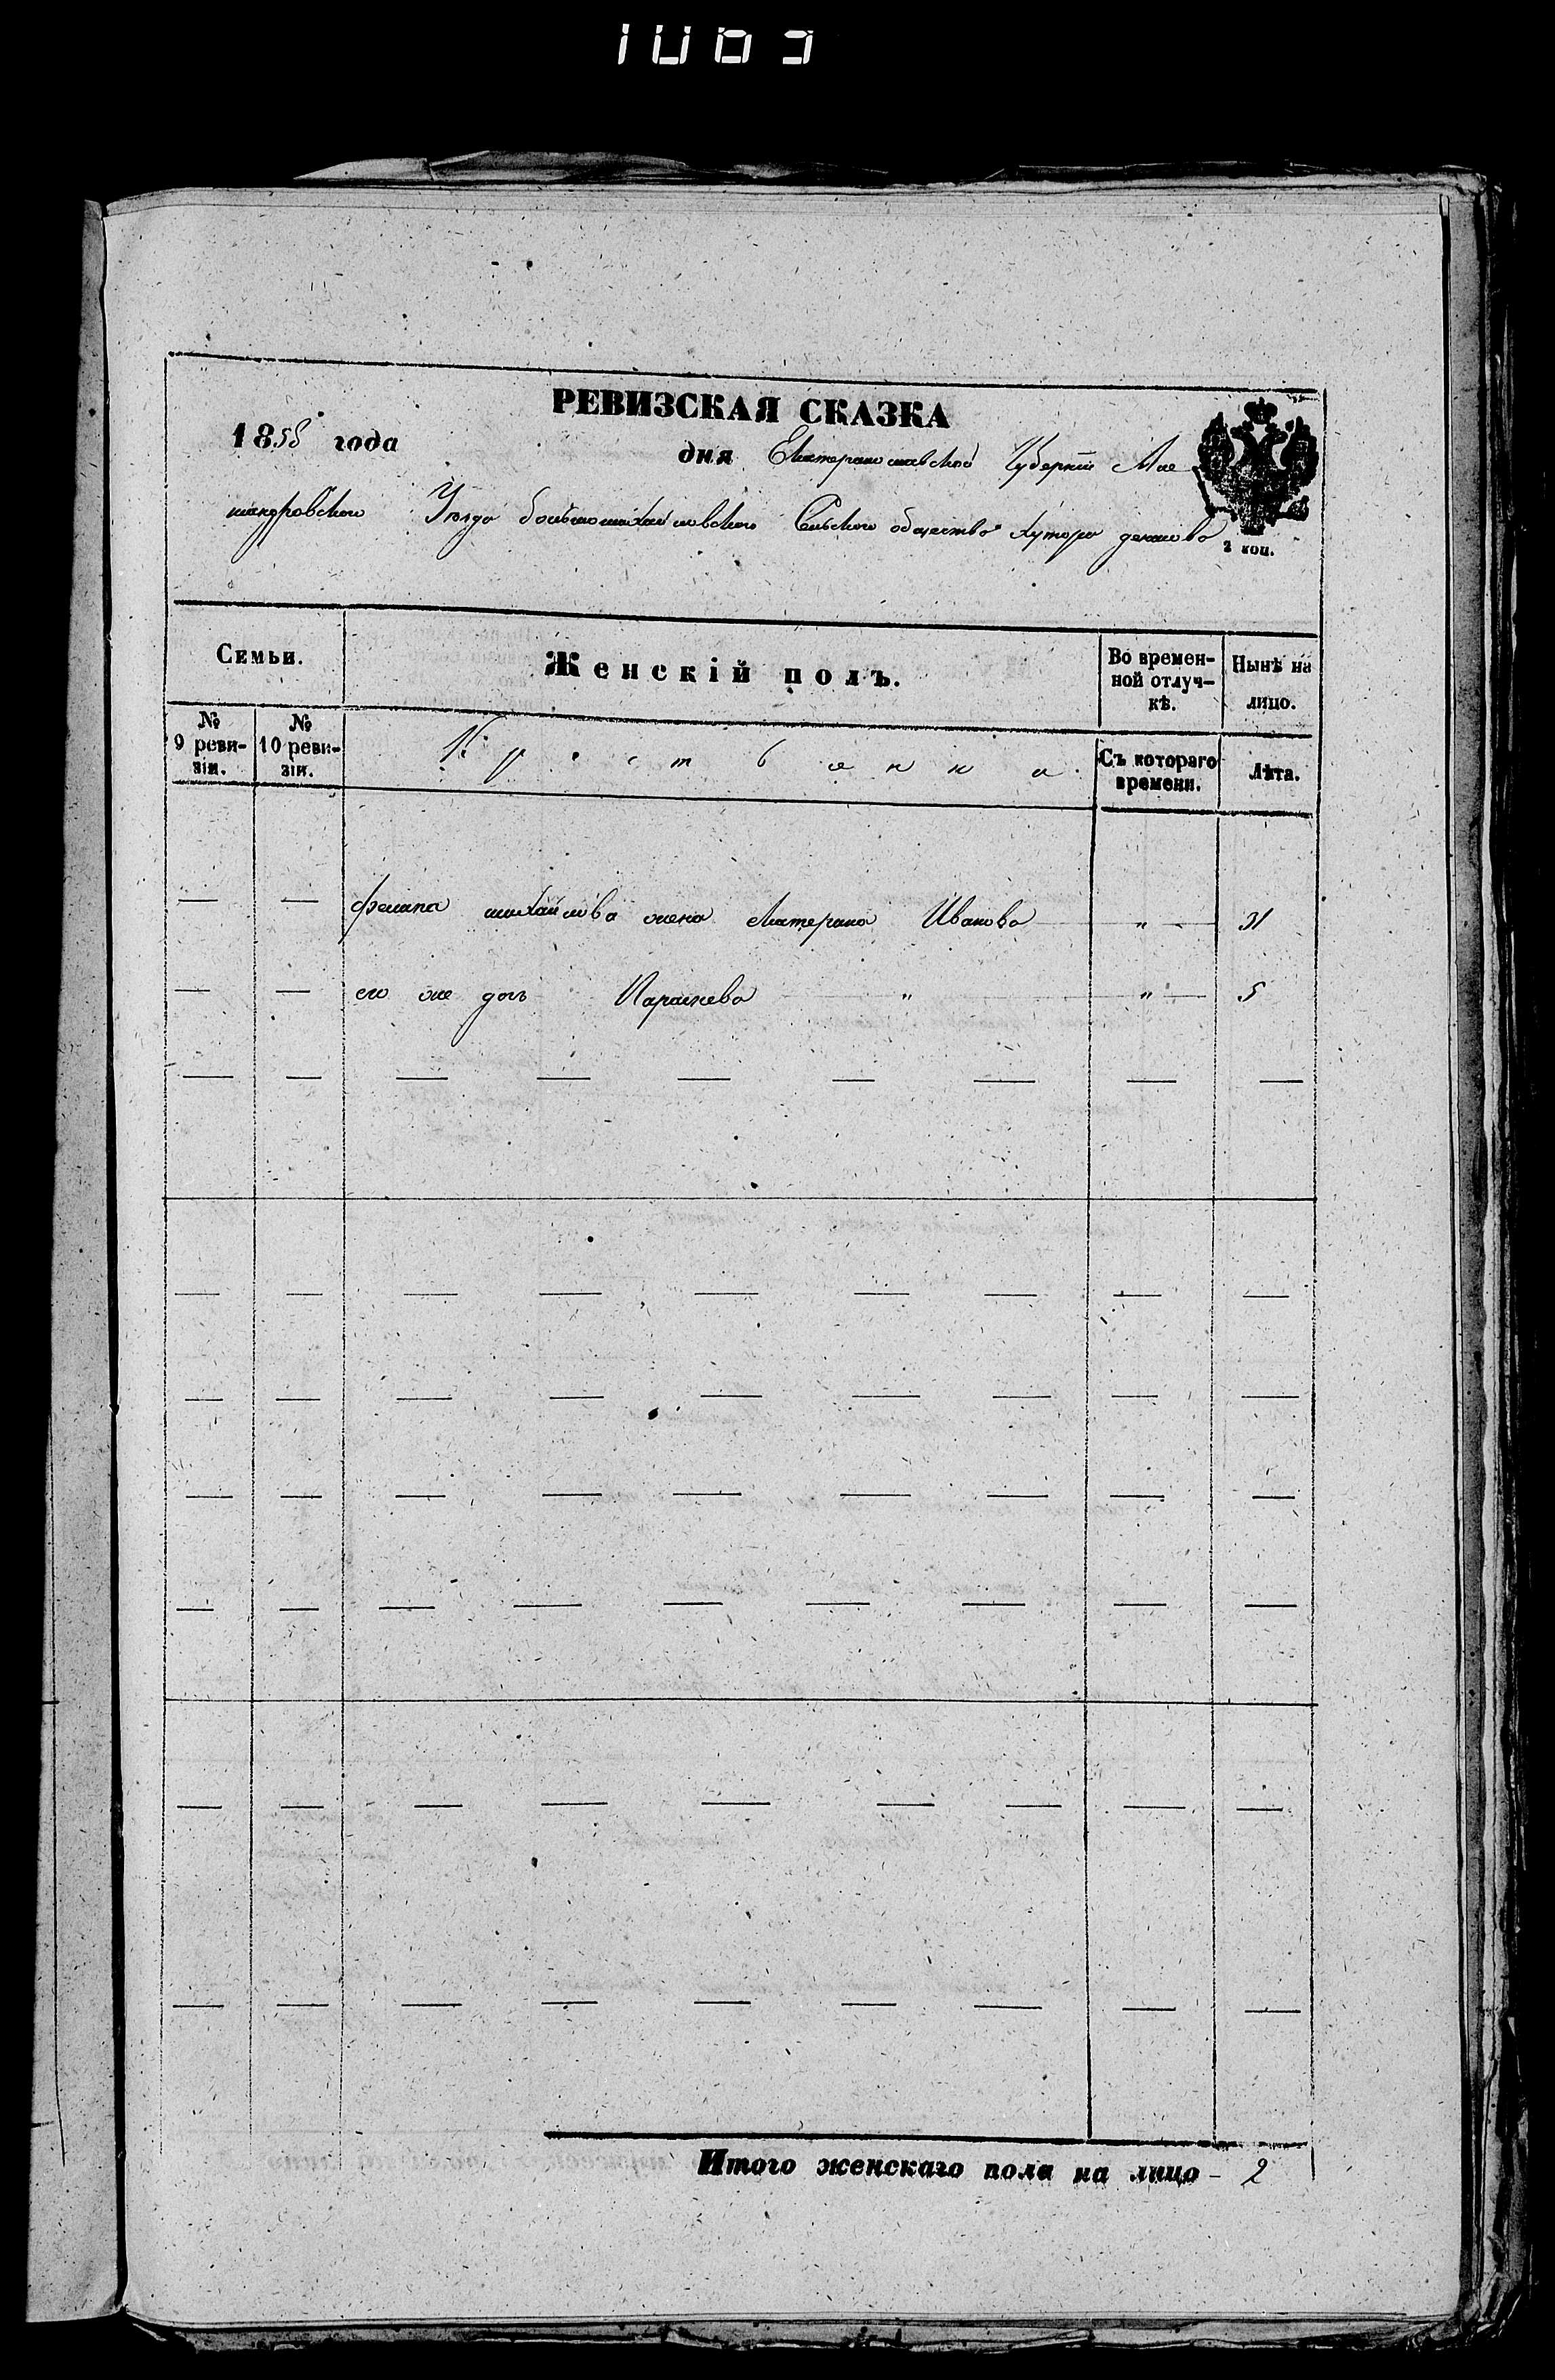 РЕВИЗСКАЯ СКАЗКА
1858 года дня Екатеринославской Губернiи Але
ксандровского Уезда большомихайловского Сельского общества хутора
2 коп.
Семьи.
Женскій полъ.
Во времен-
ной отлуч-
кѣ.
Нынѣ на
лицо.
№
9 реви-
зіи.
№
10 реви-
зіи.
Съ котораго
времени.
Лѣта.
филипа михайлова жена екатерина Иванова " 31
его же дочь Параскева " " 5
Итого женскаго пола на лицо - 2